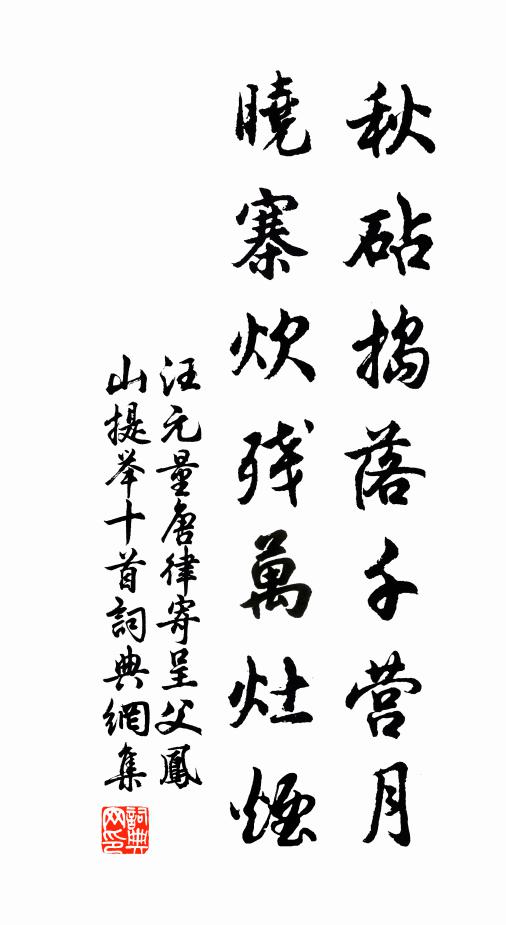 秋砧捣落千营月
曉寨炊残萬灶煙
汪元量唐律寄呈父鳳
山提举十首詞典網集
詞典网印